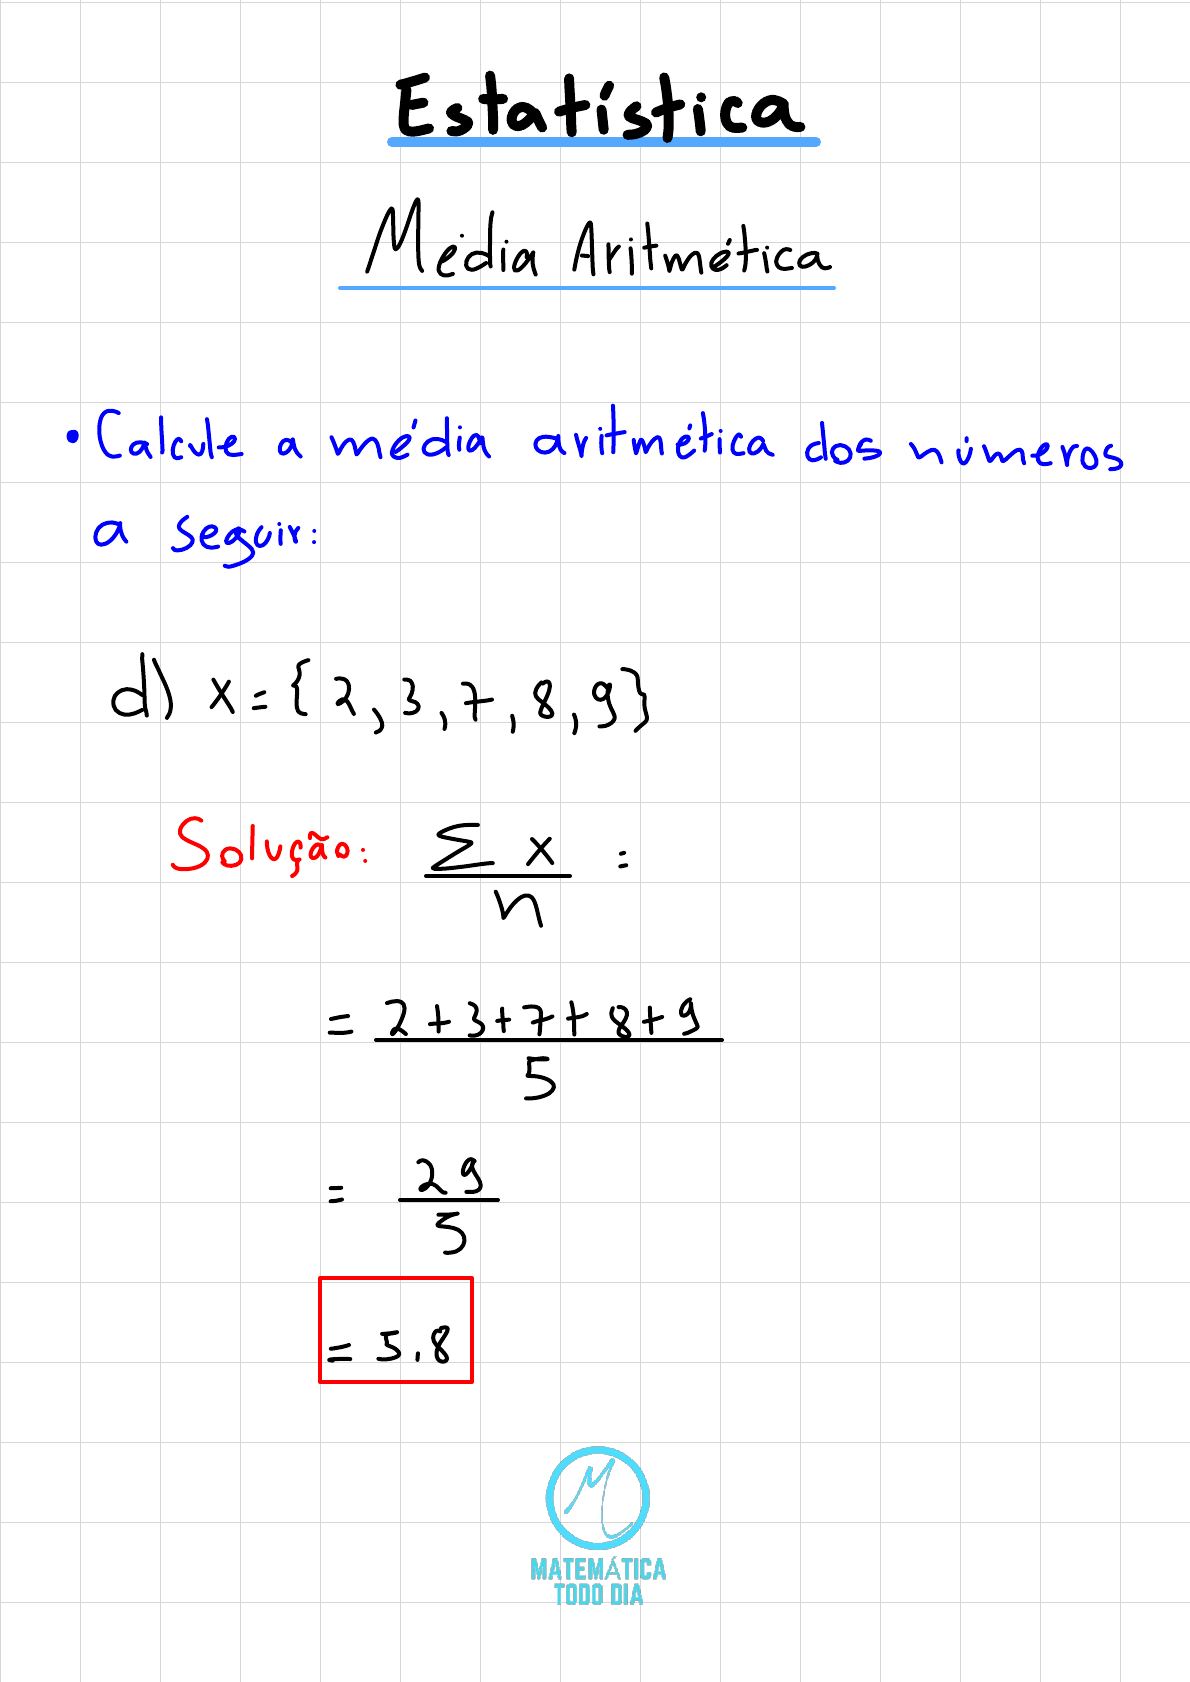 Estatística
Média Aritmética
• Calcule a média aritmética dos números
a seguir:
d) x = {2, 3, 7, 8, 9}
Solução: Σ x =
n
= 2+3+7+8+9
5
= 29
5
= 5.8
M
MATEMÁTICA
TODO DIA